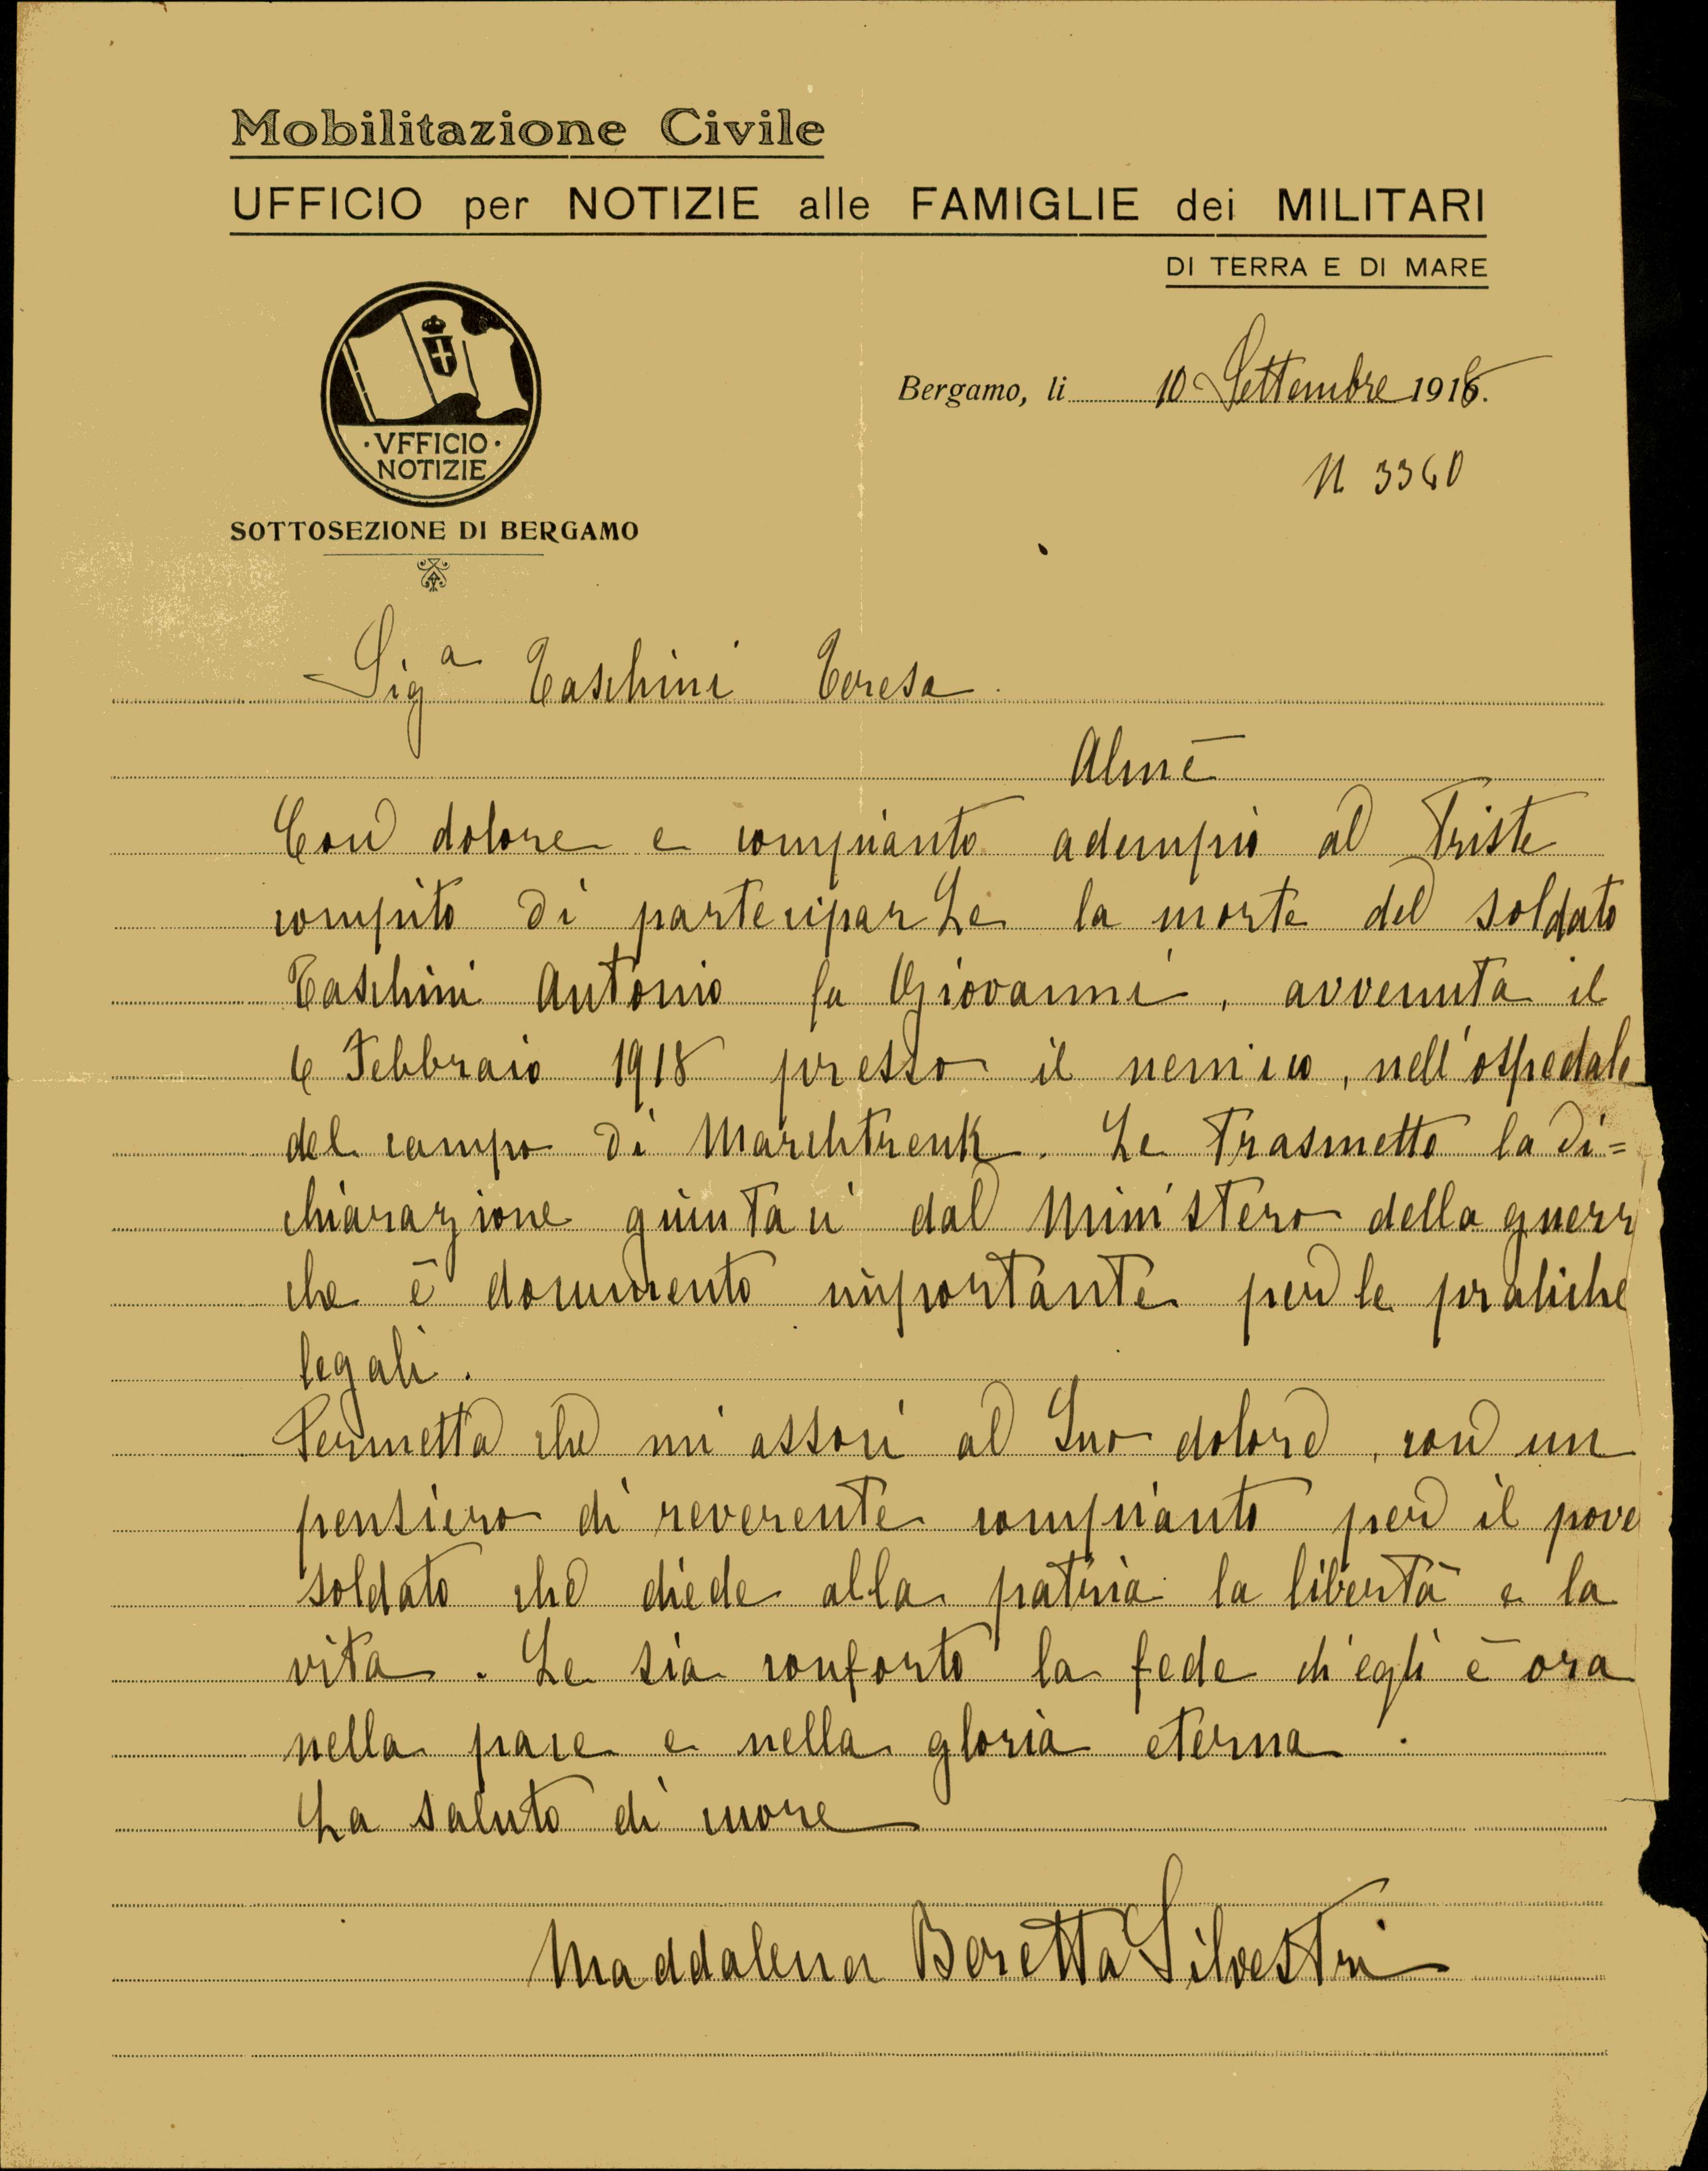 Mobilitazione Civile
UFFICIO per NOTIZIE alle FAMIGLIE dei MILITARI
DI TERRA E DI MARE
Bergamo, li 10 Settembre 1918.
N 3360
·VFFICIO·
NOTIZIE
SOTTOSEZIONE DI BERGAMO
Sigª Taschini Teresa.
Almè
Con dolore e compianto adempio al triste
compito di parteciparLe la morte del soldato
Taschini Antonio fu Giovanni, avvenuta il
6 Febbraio 1918 presso il nemico, nell'ospedale
del campo di Marchtrenk. Le trasmetto la di=
chiarazione giuntaci dal Ministero della guerr
che è documento importante per le pratiche
legali.
Permetta che mi associ al Suo dolore, con un
pensiero di reverente compianto per il pove
soldato che diede alla patria la libertà e la
vita. Le sia conforto la fede ch'egli è ora
nella pace e nella gloria eterna.
La saluto di cuore
Maddalena Beretta Silvestri